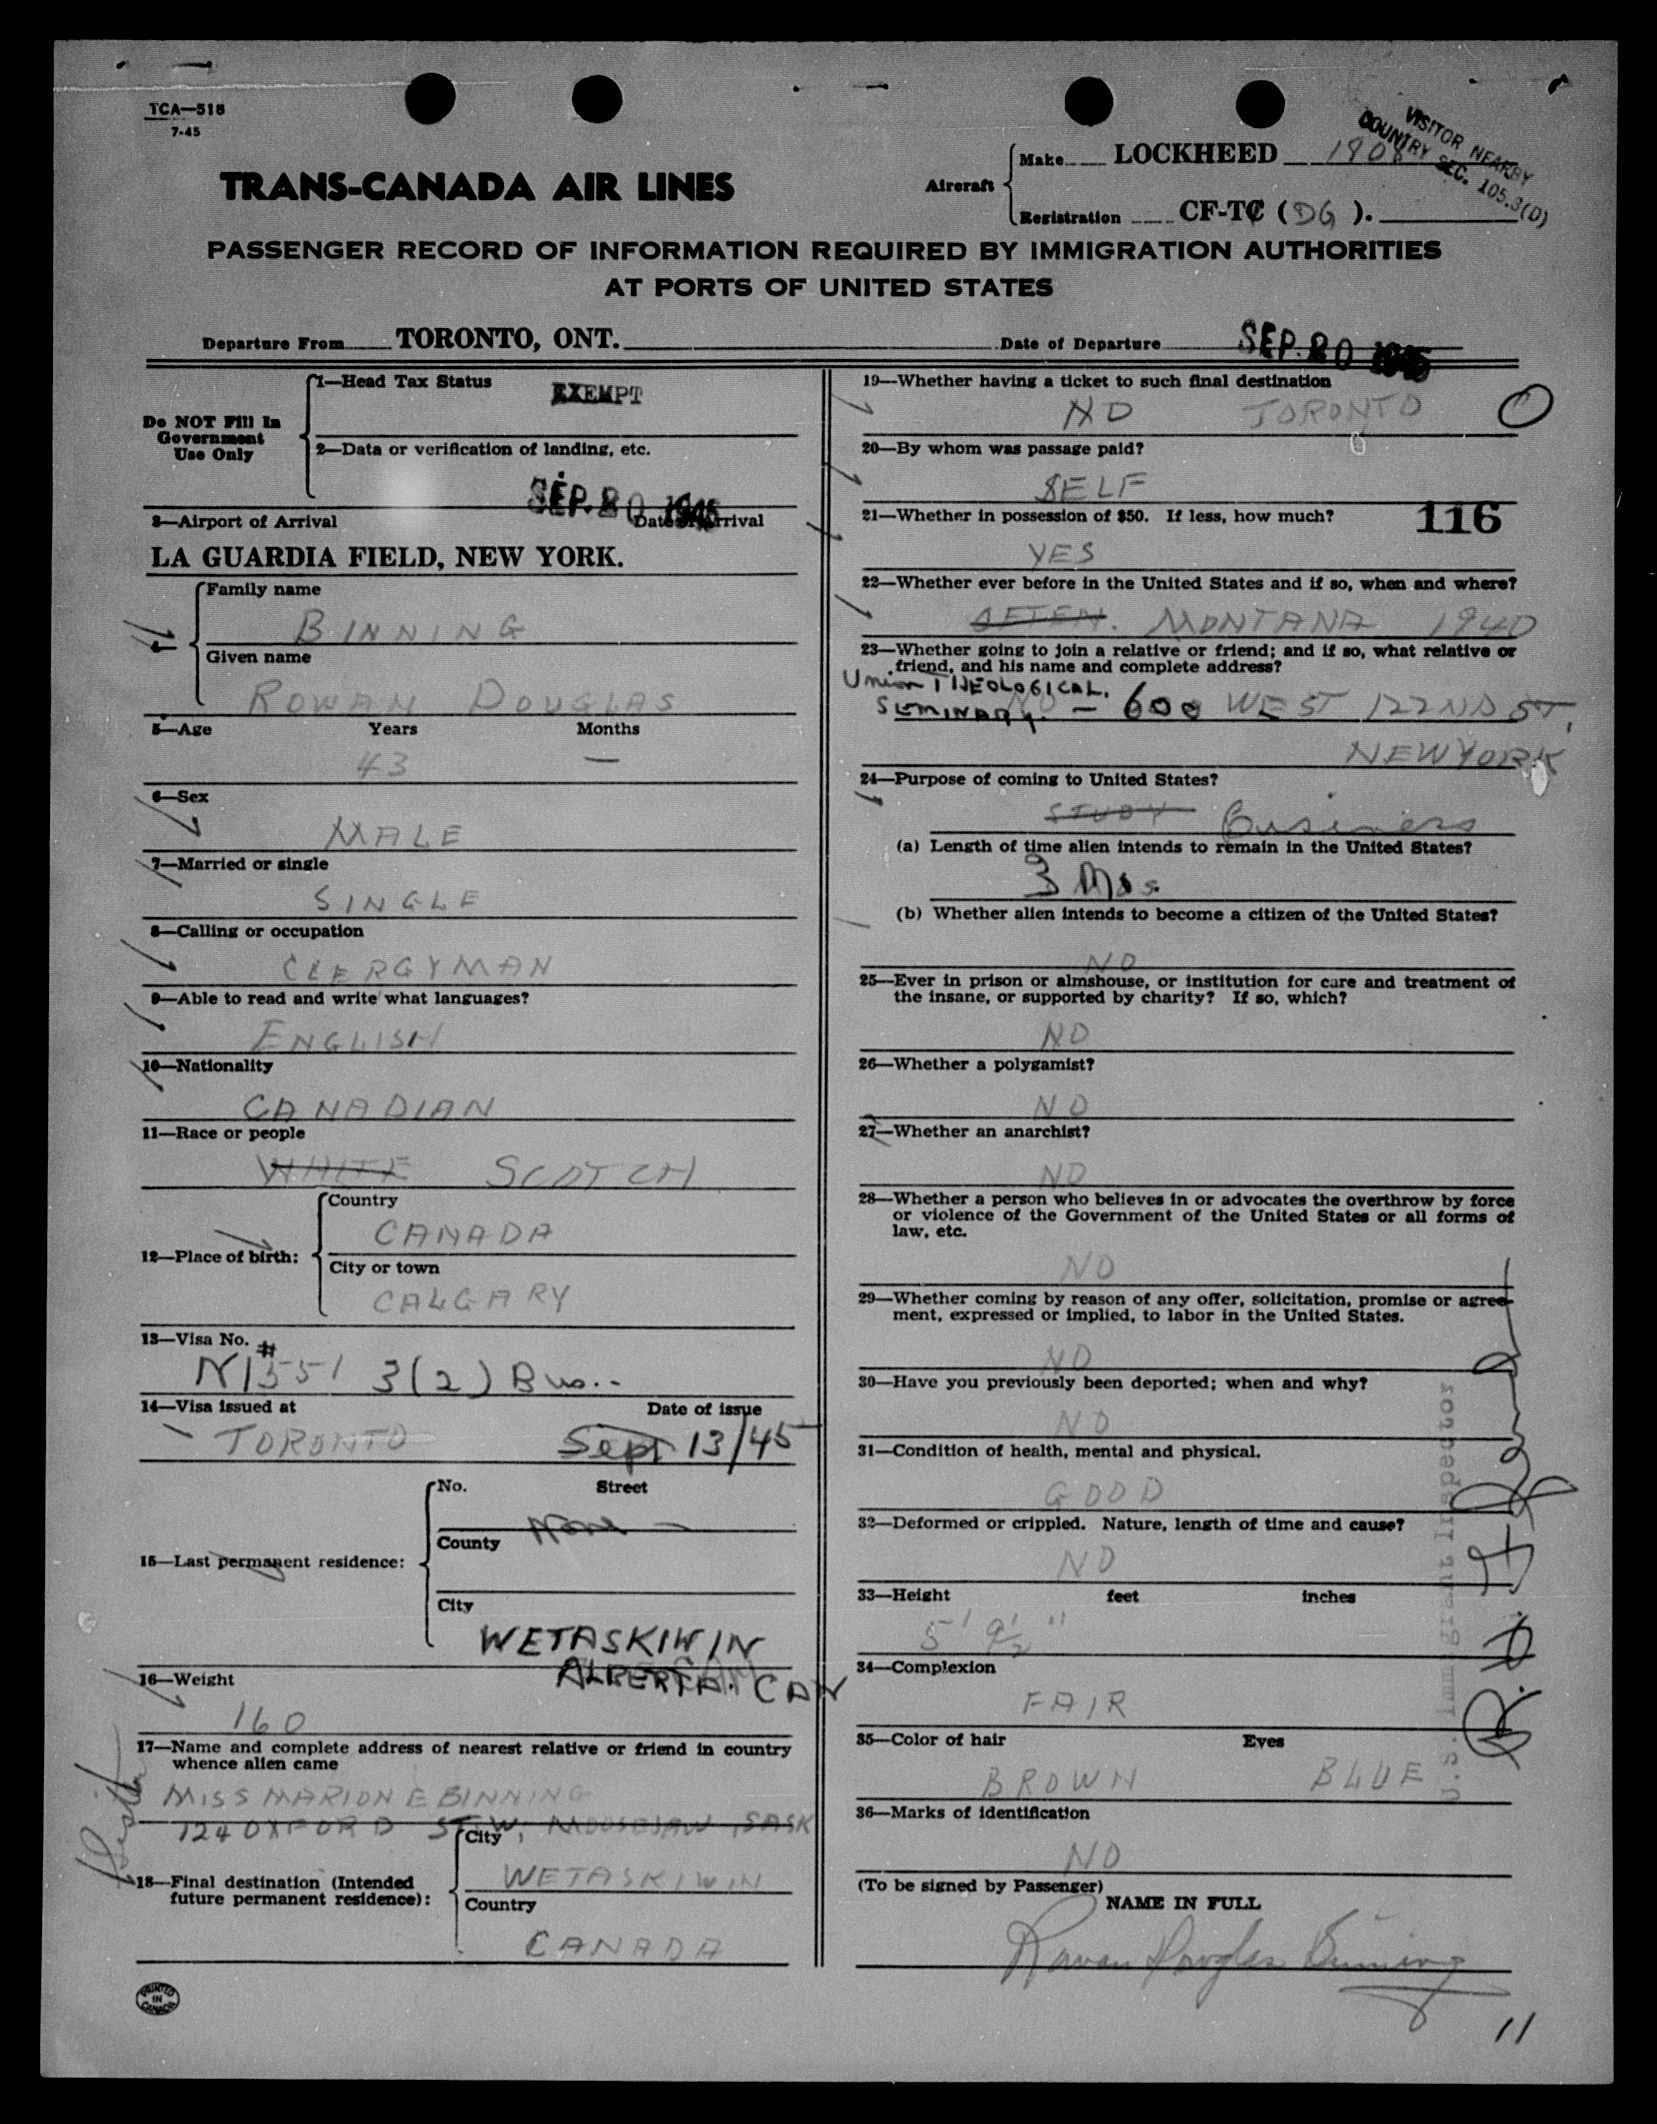 TCA—518
7-45
VISITOR NEARBY
COUNTRY SEC. 105.3(D)
TRANS-CANADA AIR LINES
Aircraft
Make LOCKHEED 1408
Registration CF-TC (DG).
PASSENGER RECORD OF INFORMATION REQUIRED BY IMMIGRATION AUTHORITIES
AT PORTS OF UNITED STATES
Departure From TORONTO, ONT.
Date of Departure SEP. 20 1945
Do NOT Fill In
Government
Use Only
1—Head Tax Status
EXEMPT
2—Data or verification of landing, etc.
SEP. 20 1945
3—Airport of Arrival Date of Arrival
LA GUARDIA FIELD, NEW YORK.
Family name
BINNING
Given name
ROWAN DOUGLAS
5—Age Years Months
43 —
6—Sex
MALE
7—Married or single
SINGLE
8—Calling or occupation
CLERGYMAN
9—Able to read and write what languages?
ENGLISH
10—Nationality
CANADIAN
11—Race or people
WHITE SCOTCH
12—Place of birth:
Country
CANADA
City or town
CALGARY
13—Visa No. #
N1551 3(2) Bus.
14—Visa issued at Date of issue
TORONTO Sept 13/45
15—Last permanent residence:
No. Street
None —
County
City
WETASKIWIN
ALBERTA. CAN
16—Weight
160
17—Name and complete address of nearest relative or friend in country
whence alien came
MISS MARION E BINNING
724 OXFORD ST W, MOOSEJAW, SASK
Sister
18—Final destination (Intended
future permanent residence):
City
WETASKIWIN
Country
CANADA
PRINTED
IN
CANADA
19—Whether having a ticket to such final destination
NO TORONTO
20—By whom was passage paid?
SELF
21—Whether in possession of $50. If less, how much?
116
YES
22—Whether ever before in the United States and if so, when and where?
OFTEN. MONTANA 1940
23—Whether going to join a relative or friend; and if so, what relative or
friend, and his name and complete address?
Union THEOLOGICAL.
SEMINARY. NO — 600 WEST 122ND ST,
NEW YORK
24—Purpose of coming to United States?
STUDY Business
(a) Length of time alien intends to remain in the United States?
3 Mos.
(b) Whether alien intends to become a citizen of the United States?
NO
25—Ever in prison or almshouse, or institution for care and treatment of
the insane, or supported by charity? If so, which?
NO
26—Whether a polygamist?
NO
27—Whether an anarchist?
NO
28—Whether a person who believes in or advocates the overthrow by force
or violence of the Government of the United States or all forms of
law, etc.
NO
29—Whether coming by reason of any offer, solicitation, promise or agree-
ment, expressed or implied, to labor in the United States.
NO
30—Have you previously been deported; when and why?
NO
31—Condition of health, mental and physical.
GOOD
32—Deformed or crippled. Nature, length of time and cause?
NO
33—Height feet inches
5' 9½"
34—Complexion
FAIR
35—Color of hair Eyes
BROWN BLUE
36—Marks of identification
NO
U.S. Immigrant Inspector
(To be signed by Passenger)
NAME IN FULL
Rowan Douglas Binning
11